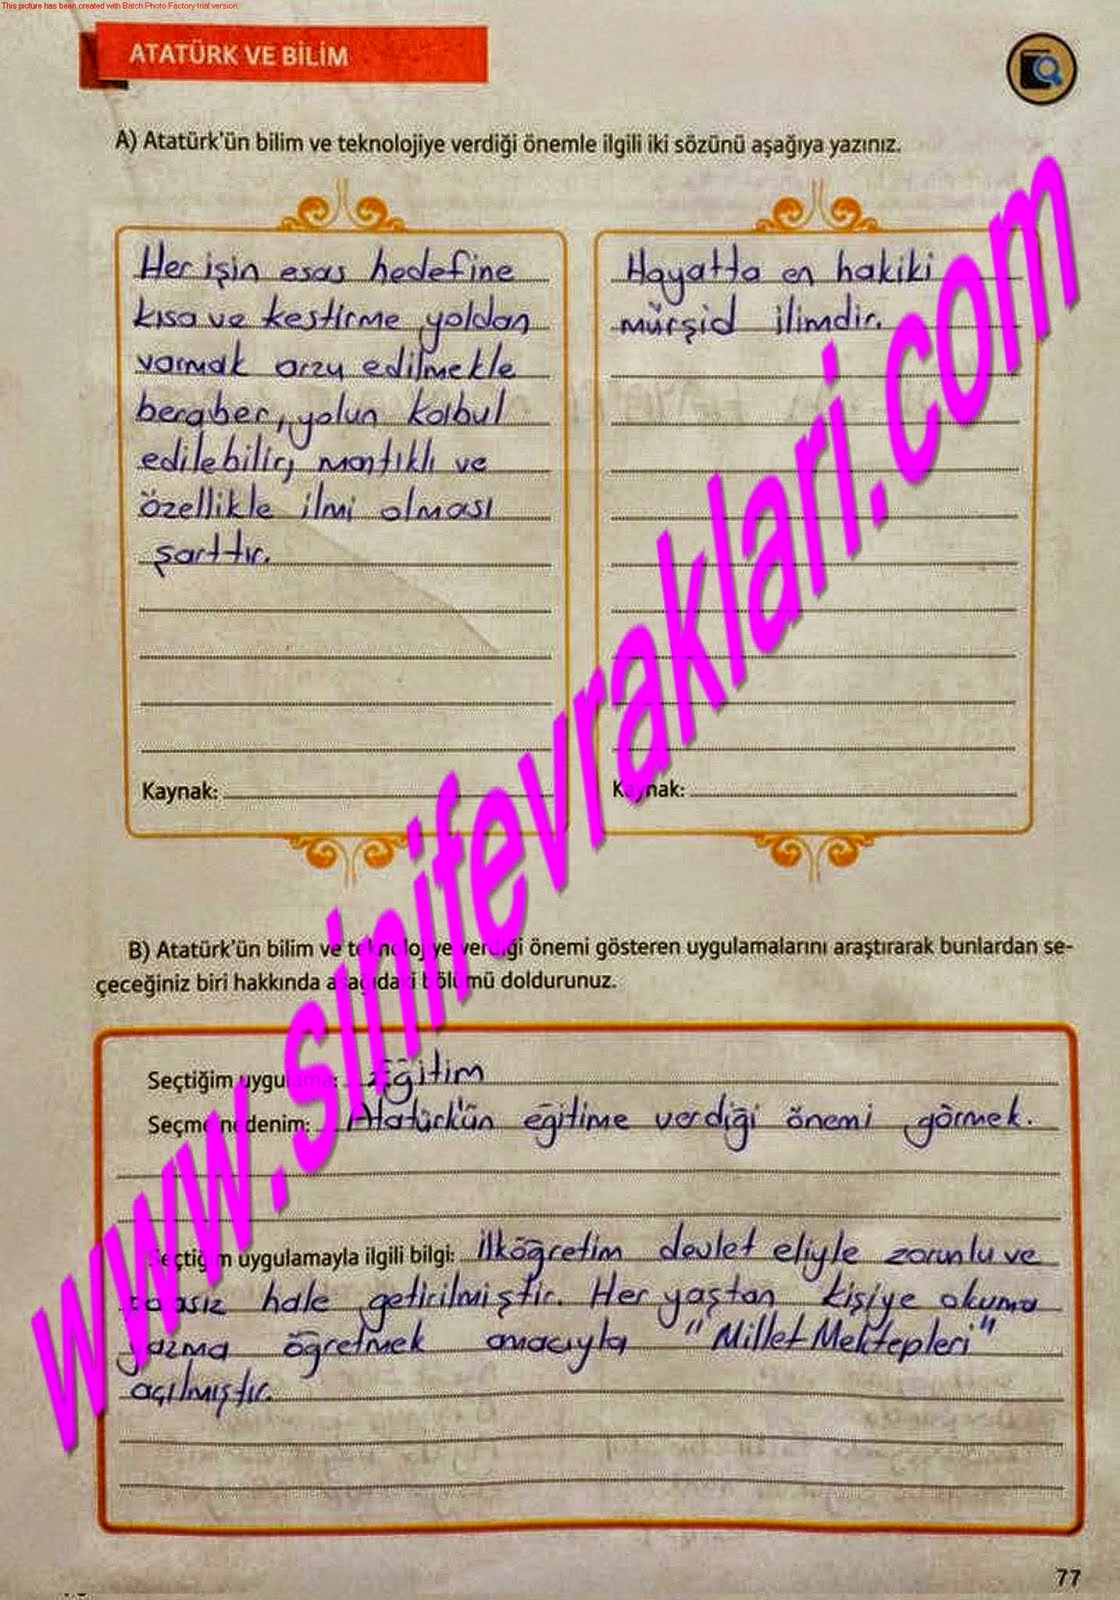 This picture has been created with Batch Photo Factory trial version
ATATÜRK VE BİLİM
A) Atatürk'ün bilim ve teknolojiye verdiği önemle ilgili iki sözünü aşağıya yazınız.
Her işin esas hedefine
kısa ve kestirme yoldan
varmak arzu edilmekle
beraber, yolun kolbul
edilebilir, mantıklı ve
özellikle ilmi olması
şarttır.
Kaynak:
Hayatta en hakiki
mürşid ilimdir.
Kaynak:
B) Atatürk'ün bilim ve teknolojiye verdiği önemi gösteren uygulamalarını araştırarak bunlardan se-
çeceğiniz biri hakkında aşağıdaki bölümü doldurunuz.
Seçtiğim uygulama: Eğitim
Seçme nedenim: Atatürk'ün eğitime verdiği önemi görmek.
Seçtiğim uygulamayla ilgili bilgi: ilköğretim devlet eliyle zorunlu ve
parasız hale getirilmiştir. Her yaştan kişiye okuma
yazma öğretmek amacıyla "Millet Mektepleri"
açılmıştır.
77
www.sinifevraklari.com